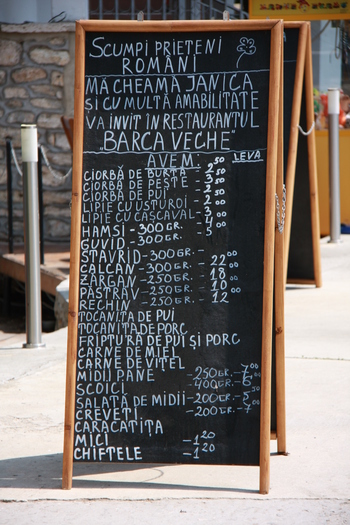 SCUMPI PRIETENI
ROMÂNI
MĂ CHEAMĂ JANICA
ȘI CU MULTĂ AMABILITATE
VA INVIT ÎN RESTAURANTUL
„BARCA VECHE"
AVEM: LEVA
CIORBĂ DE BURTA - 2,50
CIORBĂ DE PEȘTE
CIORBĂ DE PUI
LIPIE CU USTUROI
LIPIE CU CAȘCAVAL
HAMSI - 300GR.
GUVID - 300GR.
STAVRID - 300GR.
CALCAN - 300GR. - 22,00
ZARGAN - 250GR. - 18
PĂSTRAV - 250GR. - 10
RECHIN - 250GR. - 12
TOCĂNIȚA DE PUI
TOCĂNIȚA DE PORC
FRIPTURĂ DE PUI ȘI PORC
CARNE DE MIEL
CARNE DE VIȚEL
MIDII PANE - 250GR. - 7,00
SCOICI - 400GR. - 6
SALATĂ DE MIDII - 200GR. - 5,50
CREVEȚI - 200GR. - 7,00
CARACATIȚA
MICI - 1,20
CHIFTELE - 1,20